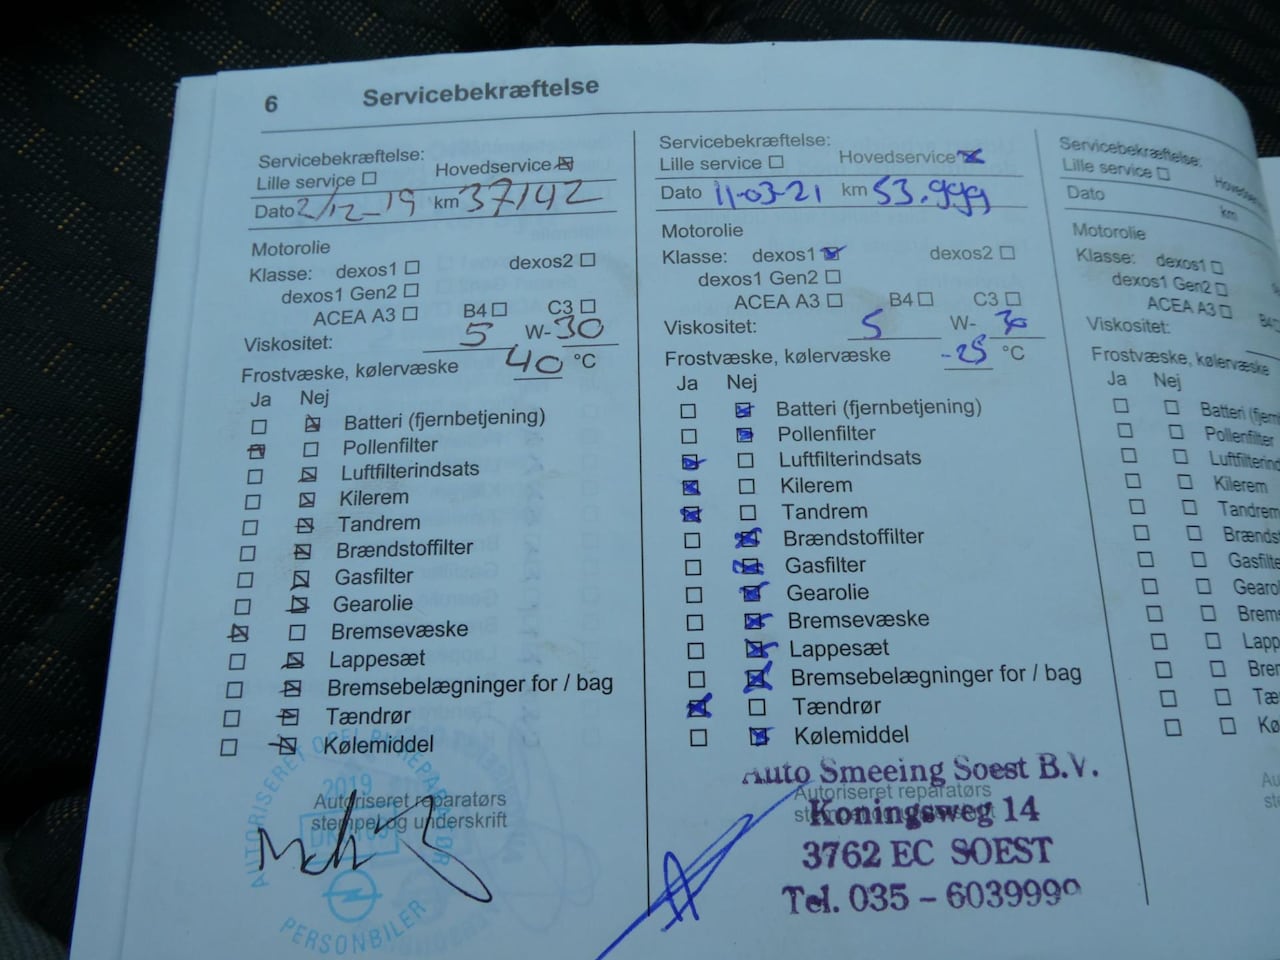 6 Servicebekræftelse
Servicebekræftelse:
Lille service ☐ Hovedservice ☒
Dato 2/12-19 km 37142
Motorolie
Klasse: dexos1 ☐ dexos2 ☐
dexos1 Gen2 ☐
ACEA A3 ☐ B4 ☐ C3 ☐
Viskositet: 5 W-30
Frostvæske, kølervæske 40 °C
Ja Nej
☐ ☒ Batteri (fjernbetjening)
☒ ☐ Pollenfilter
☐ ☒ Luftfilterindsats
☐ ☒ Kilerem
☐ ☒ Tandrem
☐ ☒ Brændstoffilter
☐ ☒ Gasfilter
☐ ☒ Gearolie
☒ ☐ Bremsevæske
☐ ☒ Lappesæt
☐ ☒ Bremsebelægninger for / bag
☐ ☒ Tændrør
☐ ☒ Kølemiddel
Autoriseret reparatørs
stempel og underskrift
AUTORISERET OPEL
2019
PERSONBILER
Servicebekræftelse:
Lille service ☐ Hovedservice ☒
Dato 11-03-21 km 53.999
Motorolie
Klasse: dexos1 ☒ dexos2 ☐
dexos1 Gen2 ☐
ACEA A3 ☐ B4 ☐ C3 ☐
Viskositet: 5 W- 30
Frostvæske, kølervæske -25 °C
Ja Nej
☐ ☒ Batteri (fjernbetjening)
☐ ☒ Pollenfilter
☒ ☐ Luftfilterindsats
☒ ☐ Kilerem
☒ ☐ Tandrem
☐ ☒ Brændstoffilter
☐ ☒ Gasfilter
☐ ☒ Gearolie
☐ ☒ Bremsevæske
☐ ☒ Lappesæt
☐ ☒ Bremsebelægninger for / bag
☒ ☐ Tændrør
☐ ☒ Kølemiddel
Autoriseret reparatørs
Auto Smeeing Soest B.V.
Koningsweg 14
3762 EC SOEST
Tel. 035 - 6039990
Servicebekræftelse:
Lille service ☐
Dato km
Motorolie
Klasse: dexos1 ☐
dexos1 Gen2 ☐
ACEA A3 ☐
Viskositet:
Frostvæske, kølervæske
Ja Nej
☐ ☐ Batteri (fjern
☐ ☐ Pollenfilter
☐ ☐ Luftfilterind
☐ ☐ Kilerem
☐ ☐ Tandrem
☐ ☐ Brændst
☐ ☐ Gasfilte
☐ ☐ Gearo
☐ ☐ Brems
☐ ☐ Lapp
☐ ☐ Brer
☐ ☐ Tæ
☐ ☐ Kø